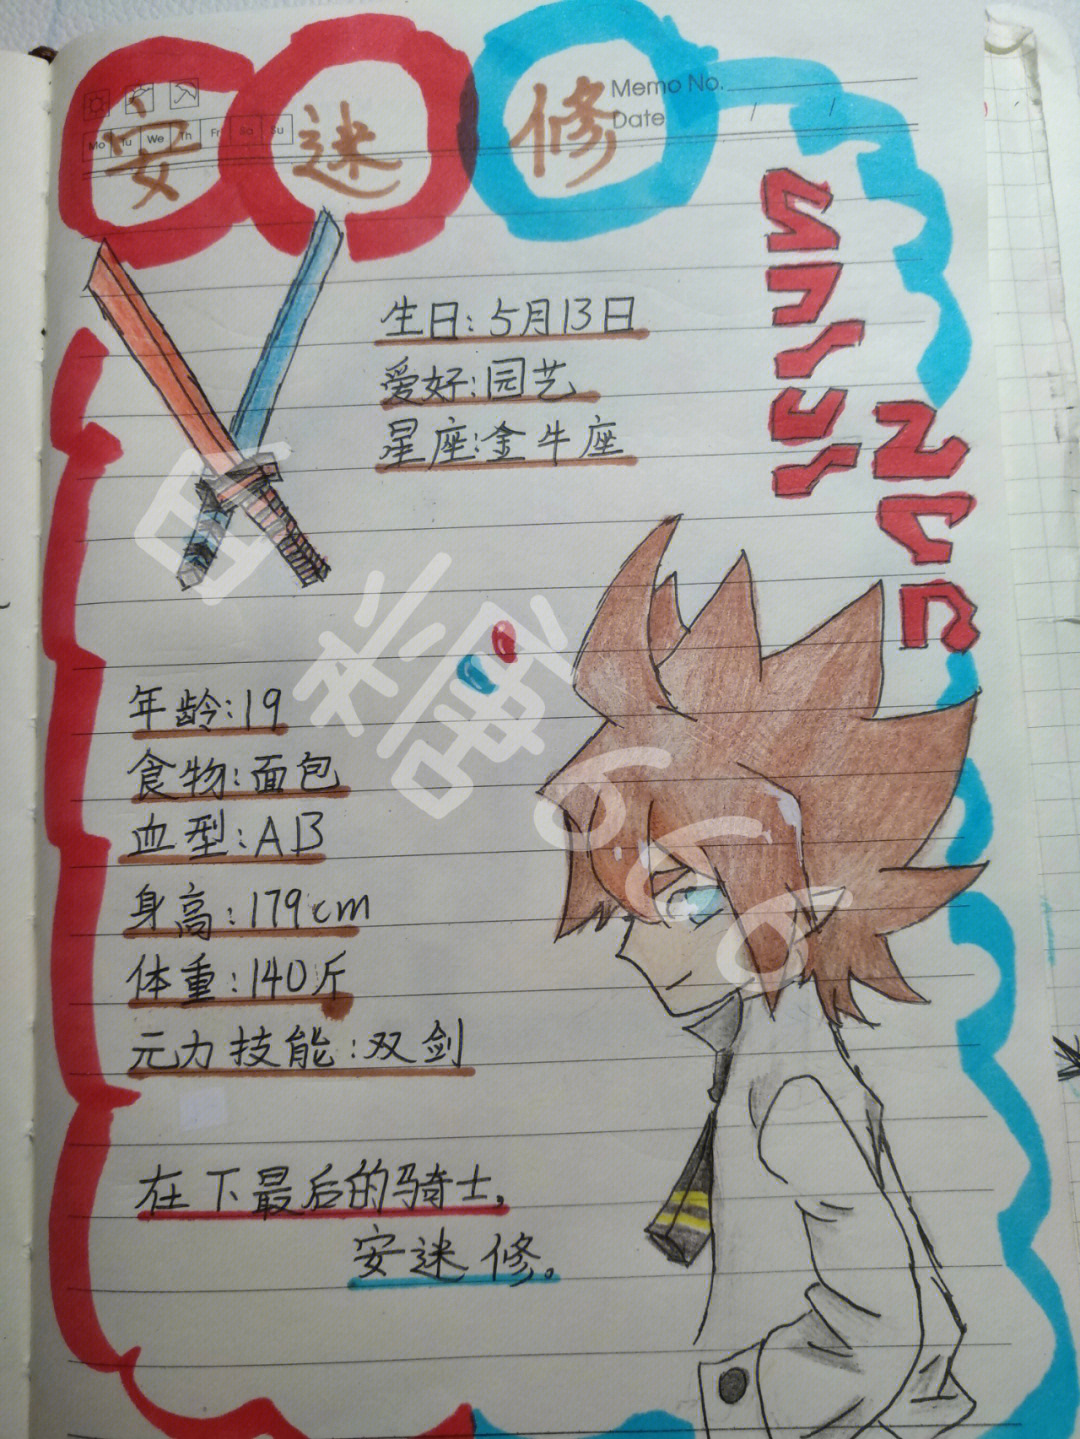 安迷修
Memo No.
Date / /
Mo Tu We Th Fr Sa Su
生日:5月13日
爱好:园艺
星座:金牛座
年龄:19
食物:面包
血型:AB
身高:179cm
体重:140斤
元力技能:双剑
在下最后的骑士,
安迷修。
白糖666